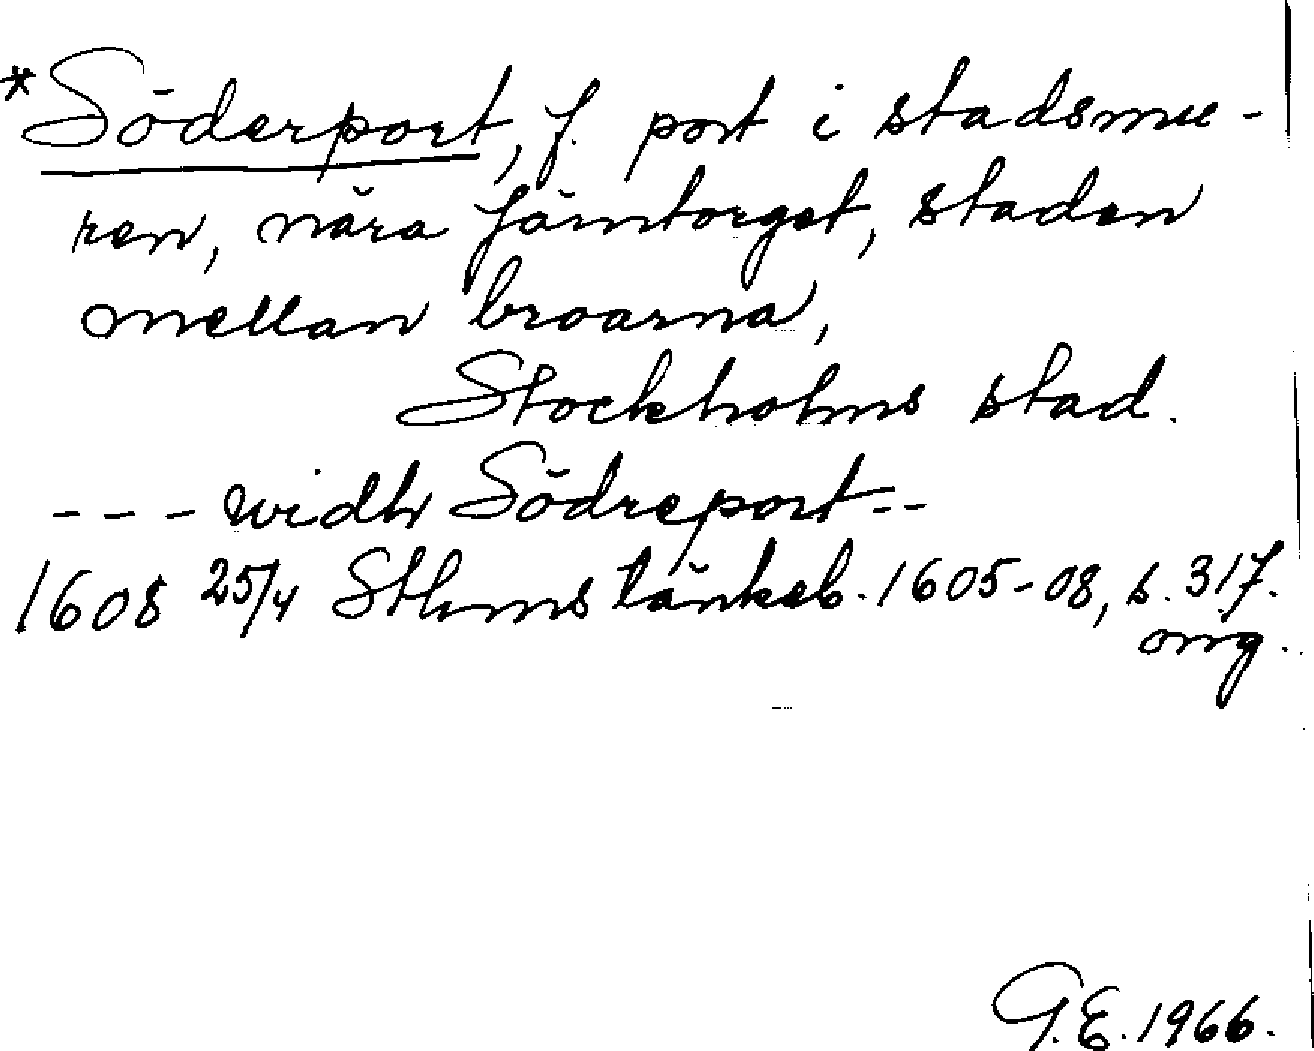 *Söderport, f. port i stadsmu-
ren, nära Järntorget, staden
mellan broarna,
Stockholms stad.
--- widh Södreport--
1608 25/4 Sthms tänkeb. 1605-08, s. 317.
omg.
G.E. 1966.